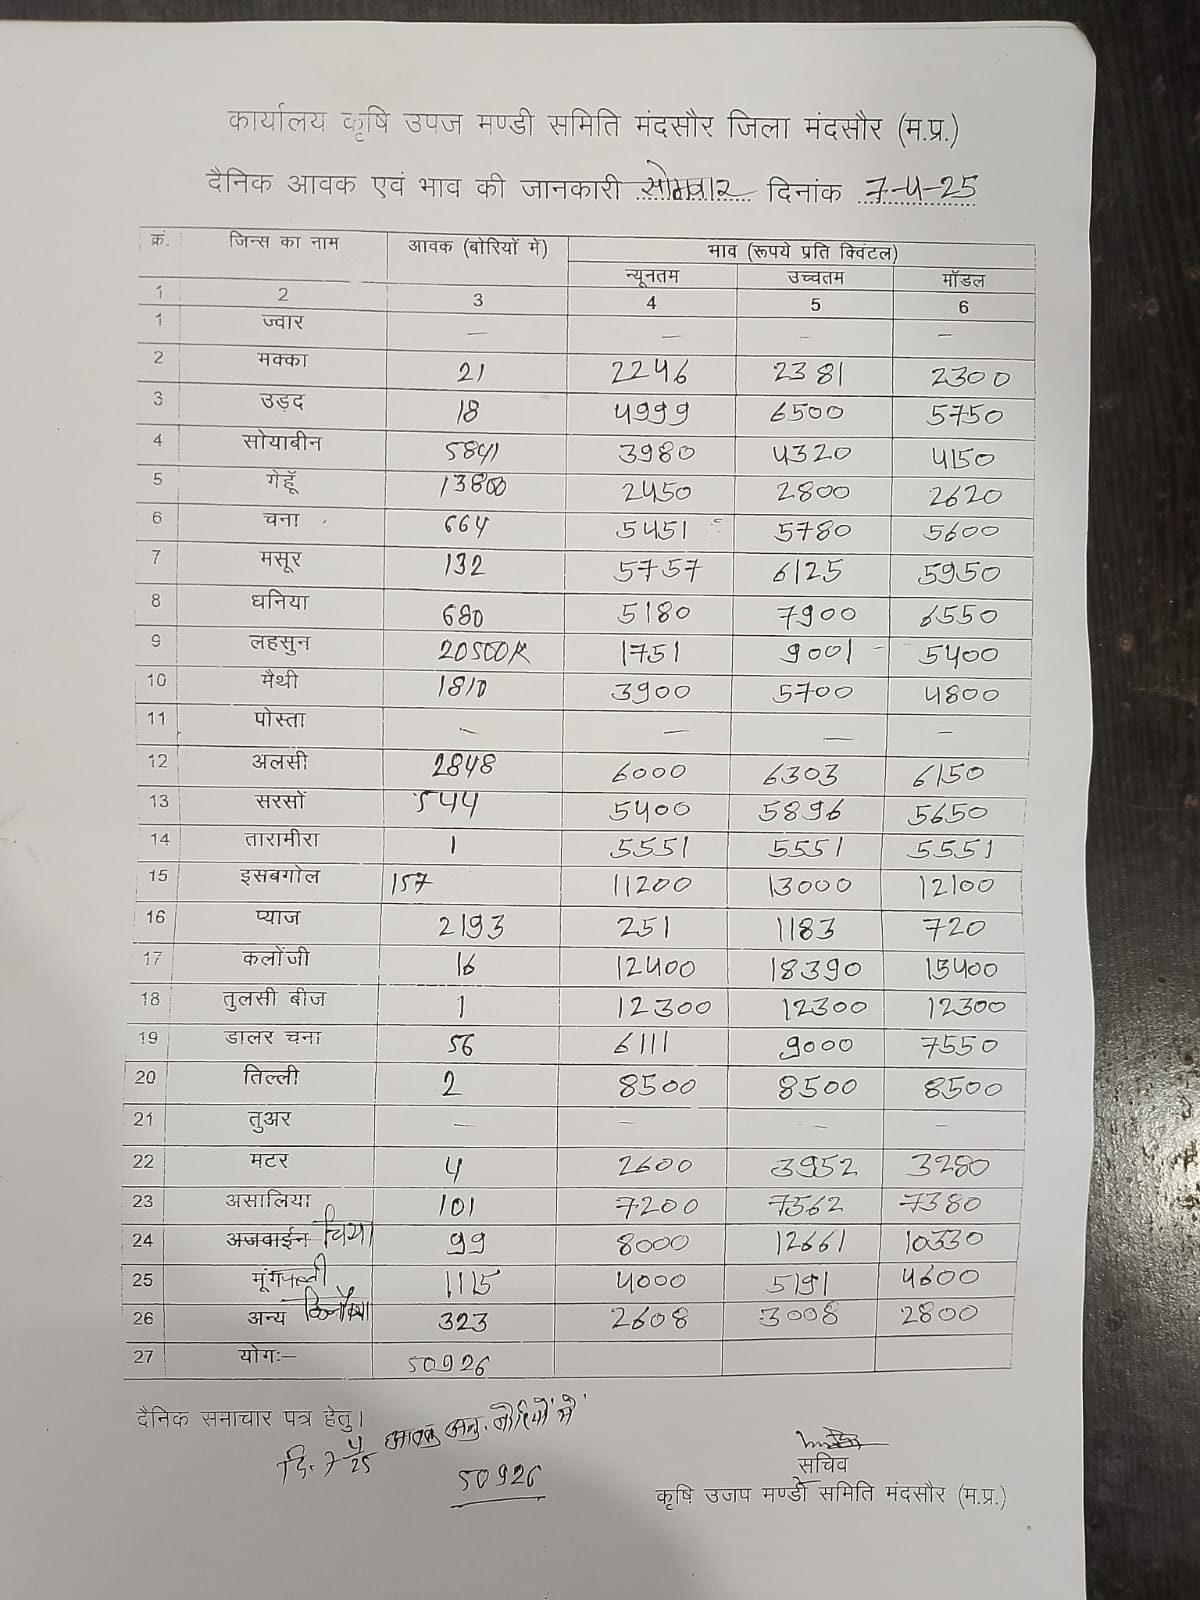 कार्यालय कृषि उपज मण्डी समिति मंदसौर जिला मंदसौर (म.प्र.)
दैनिक आवक एवं भाव की जानकारी सोमवार दिनांक 7-4-25
क्रं. जिन्स का नाम आवक (बोरियों में) भाव (रूपये प्रति क्विंटल)
न्यूनतम उच्चतम मॉडल
1 2 3 4 5 6
1 ज्वार – – – –
2 मक्का 21 2246 2381 2300
3 उड़द 18 4999 6500 5750
4 सोयाबीन 5841 3980 4320 4150
5 गेहूँ 13800 2450 2800 2620
6 चना 664 5451 5780 5600
7 मसूर 132 5757 6125 5950
8 धनिया 680 5180 7900 6550
9 लहसुन 20500K 1751 9001 5400
10 मैथी 1810 3900 5700 4800
11 पोस्ता – – – –
12 अलसी 2848 6000 6303 6150
13 सरसों 544 5400 5896 5650
14 तारामीरा 1 5551 5551 5551
15 इसबगोल 157 11200 13000 12100
16 प्याज 2193 251 1183 720
17 कलोंजी 16 12400 18390 15400
18 तुलसी बीज 1 12300 12300 12300
19 डालर चना 56 6111 9000 7550
20 तिल्ली 2 8500 8500 8500
21 तुअर – – – –
22 मटर 4 2600 3952 3280
23 असालिया 101 7200 7562 7380
24 अजवाईन चिया 99 8000 12661 10330
25 मूंगफल्ली 1115 4000 5191 4600
26 अन्य 323 2608 3008 2800
27 योगः– 50926
दैनिक समाचार पत्र हेतु।
दि. 7 4/25 आवक अनु. बोरियों में
50926
सचिव
कृषि उजप मण्डी समिति मंदसौर (म.प्र.)